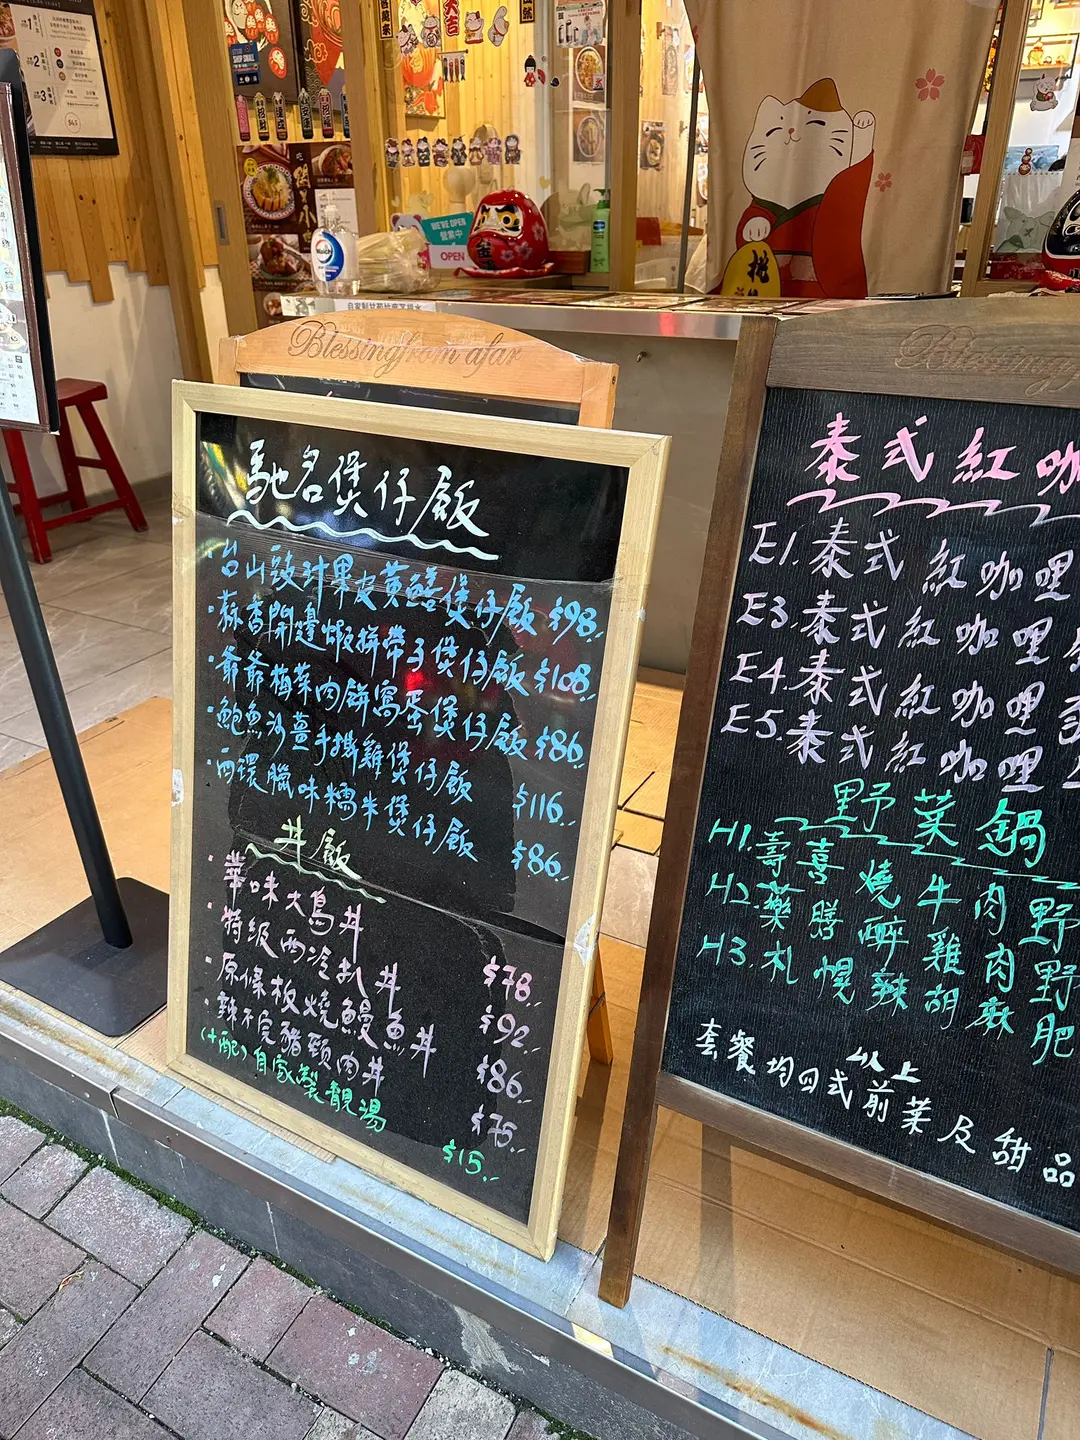 Blessing from afar
馳名煲仔飯
·台山豉汁果皮黃鱔煲仔飯 $98.-
·蒜香開邊蝦拼帶子煲仔飯 $108.-
·爺爺梅菜肉餅窩蛋煲仔飯 $86.-
·鮑魚沙薑手撕雞煲仔飯 $116.-
·兩環臘味糯米煲仔飯 $86.-
丼飯
·華味大鳥丼 $78.-
·特級西冷扒丼 $92.-
·原條板燒鰻魚丼 $86.-
·辣不完豬頸肉丼 $75.-
(+配)自家製靚湯 $15.-
泰式紅咖
E1.泰式紅咖哩
E3.泰式紅咖哩
E4.泰式紅咖哩
E5.泰式紅咖哩
野菜鍋
H1.壽喜燒牛肉野
H2.藥膳醉雞肉野
H3.札幌辣胡麻肥
以上
套餐均四式前菜及甜品
WE'RE OPEN
營業中
OPEN
SHOP SMALL
大吉
Walch